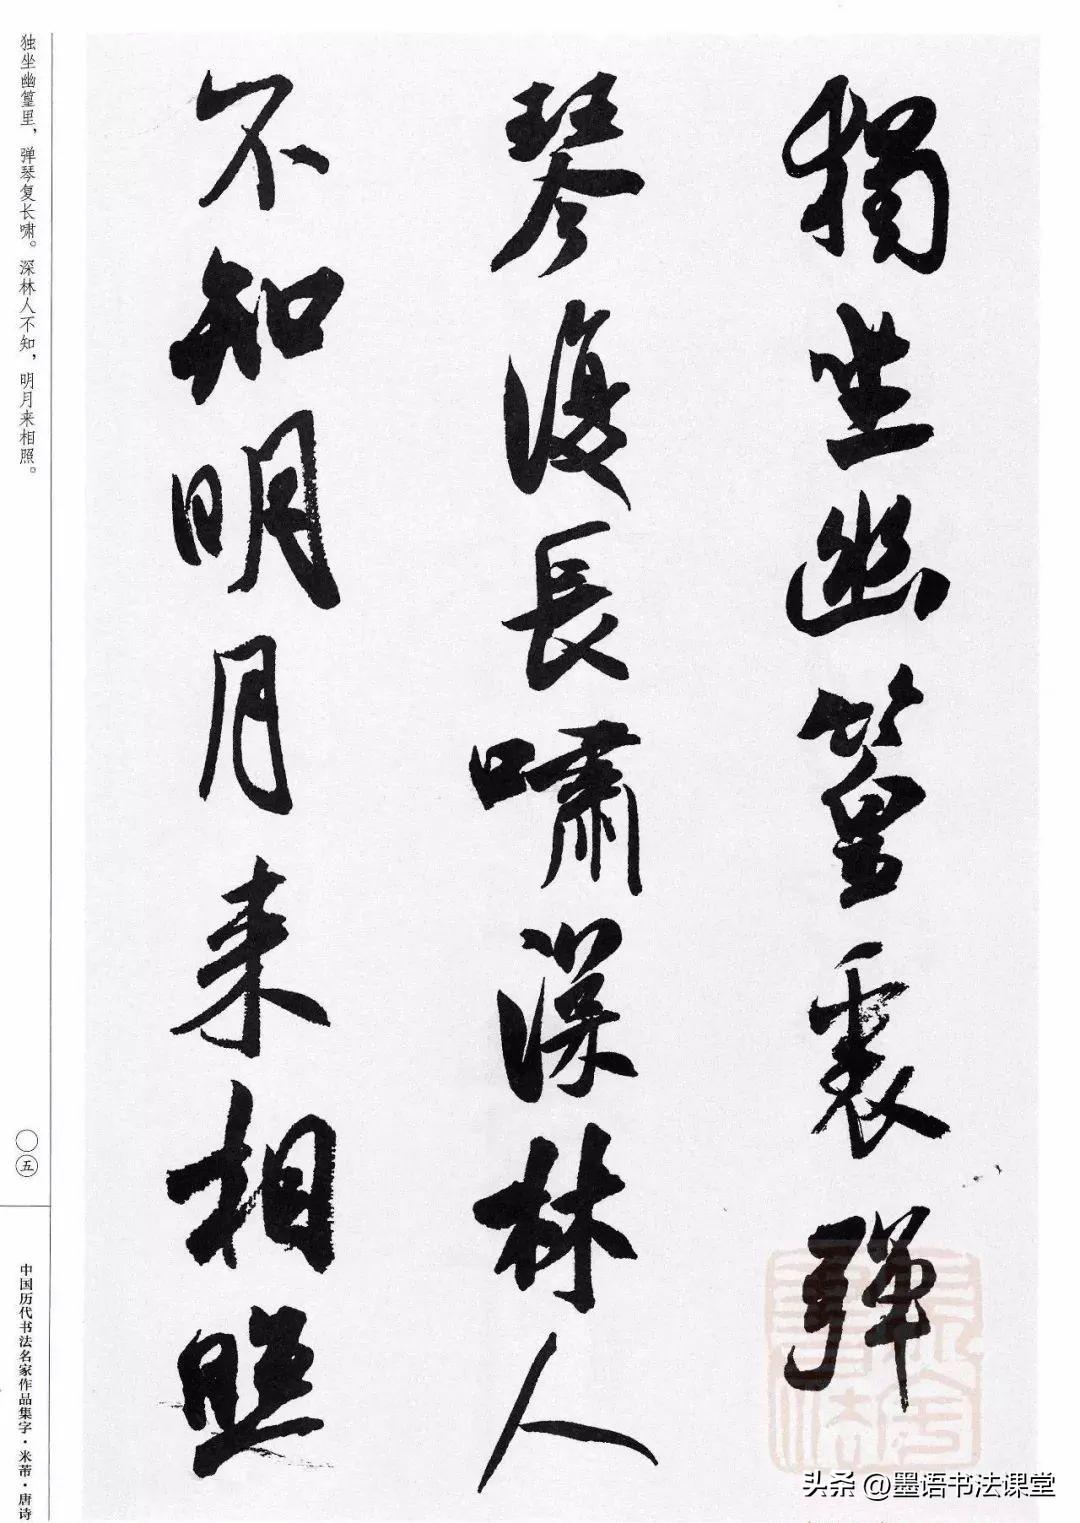 獨坐幽篁裏彈
琴復長嘯深林人
不知明月来相照
独坐幽篁里，弹琴复长啸。深林人不知，明月来相照。
〇五
中国历代书法名家作品集字·米芾·唐诗
头条@墨语书法课堂